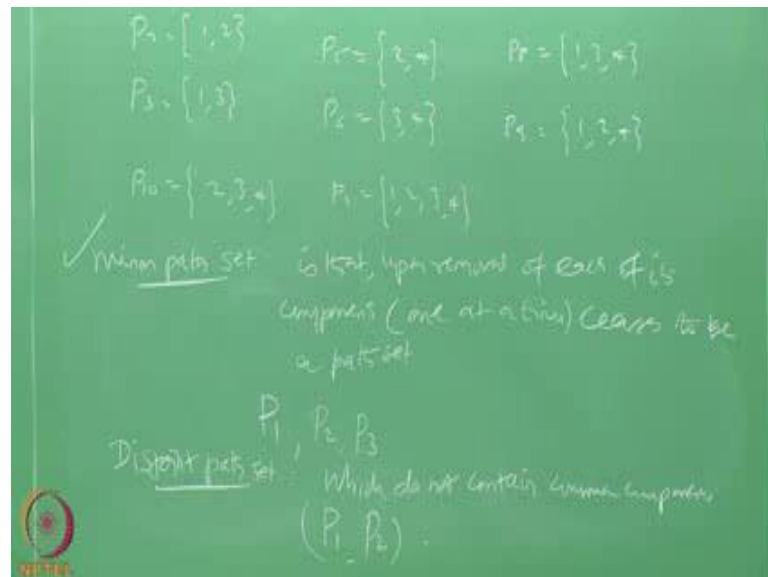 P₂ = {1,2} P₅ = {2,4} P₈ = {1,3,4}
P₃ = {1,3} P₆ = {3,4} P₉ = {1,3,4}
P₁₀ = {2,3,4} = {1,2,3,4}
✓ Minm path set is that, upon removal of each of its
component (one at a time) ceases to be
a path set
P₁, P₂, P₃
Disjoint path set which do not contain common components
(P₁ P₂).
NPTEL